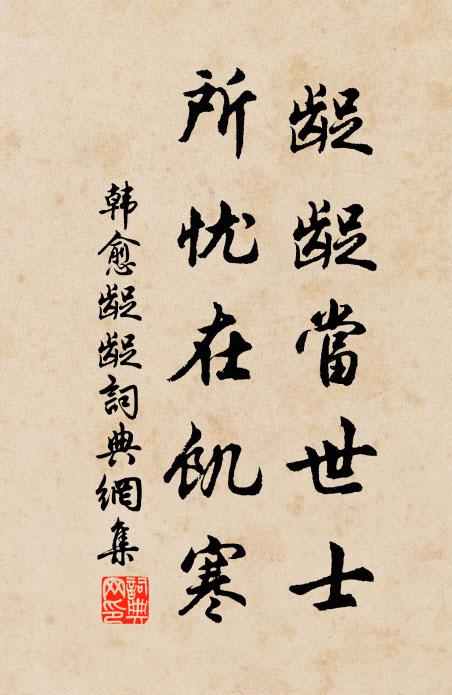 龊龊當世士
所忧在飢寒
韩愈龊龊詞典網集
詞典網印